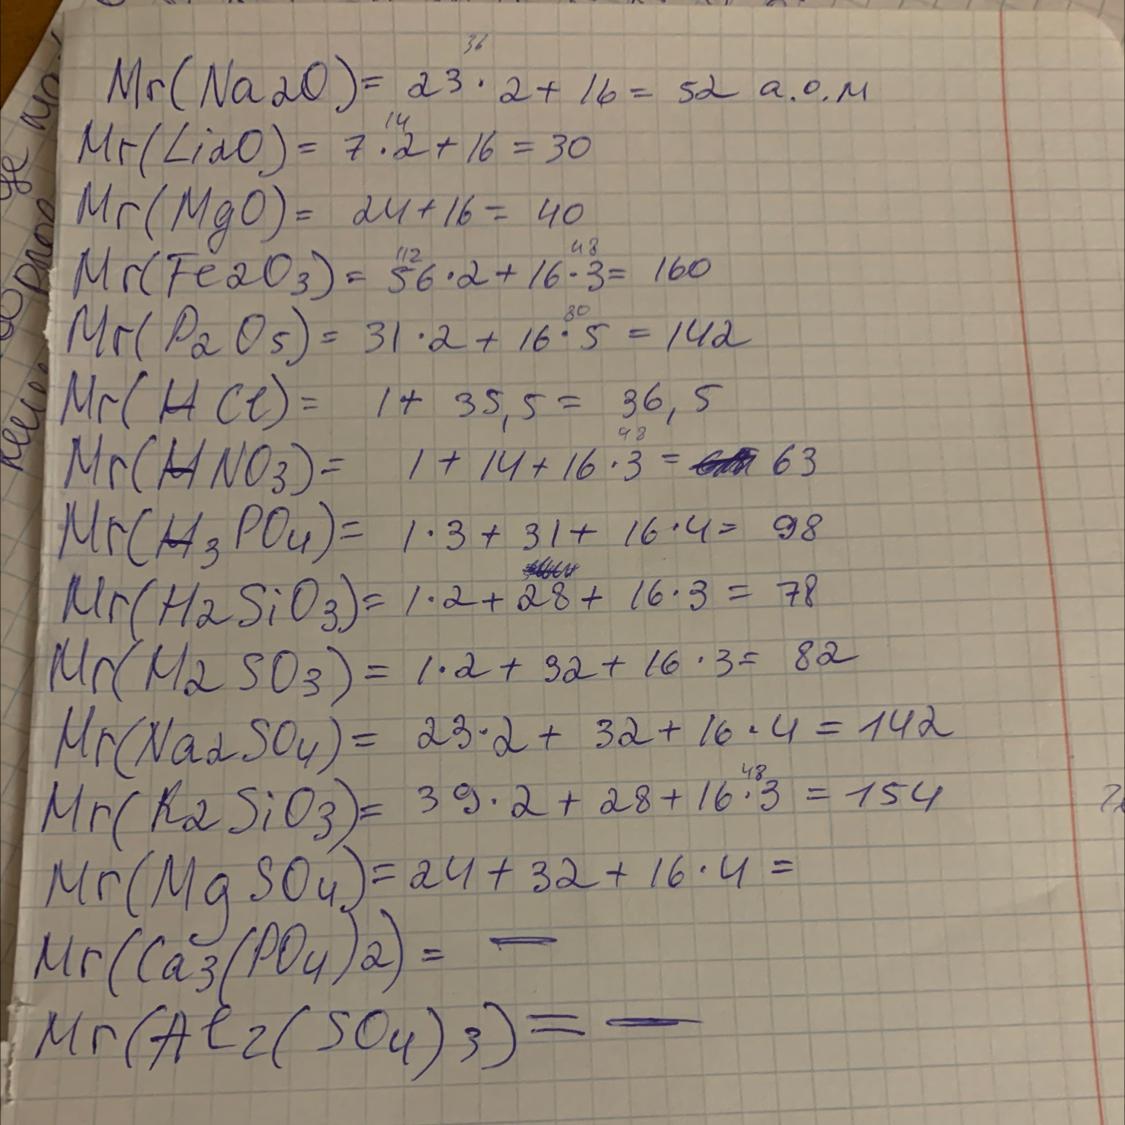 Mr(Na2O)= 23·2+16= 52 а.о.м
36
Mr(Li2O)= 7·2+16=30
14
Mr(MgO)= 24+16= 40
Mr(Fe2O3)= 56·2+16·3= 160
112 48
Mr(P2O5)= 31·2+16·5=142
80
Mr(HCl)= 1+ 35,5= 36,5
Mr(HNO3)= 1+14+16·3= 63
48
Mr(H3PO4)= 1·3+31+ 16·4= 98
Mr(H2SiO3)= 1·2+28+ 16·3= 78
Mr(H2SO3)= 1·2+32+16·3= 82
Mr(Na2SO4)= 23·2+ 32+16·4=142
Mr(K2SiO3)= 39·2+28+16·3=154
48
Mr(MgSO4)=24+32+16·4=
Mr(Ca3(PO4)2)= —
Mr(Al2(SO4)3)= —